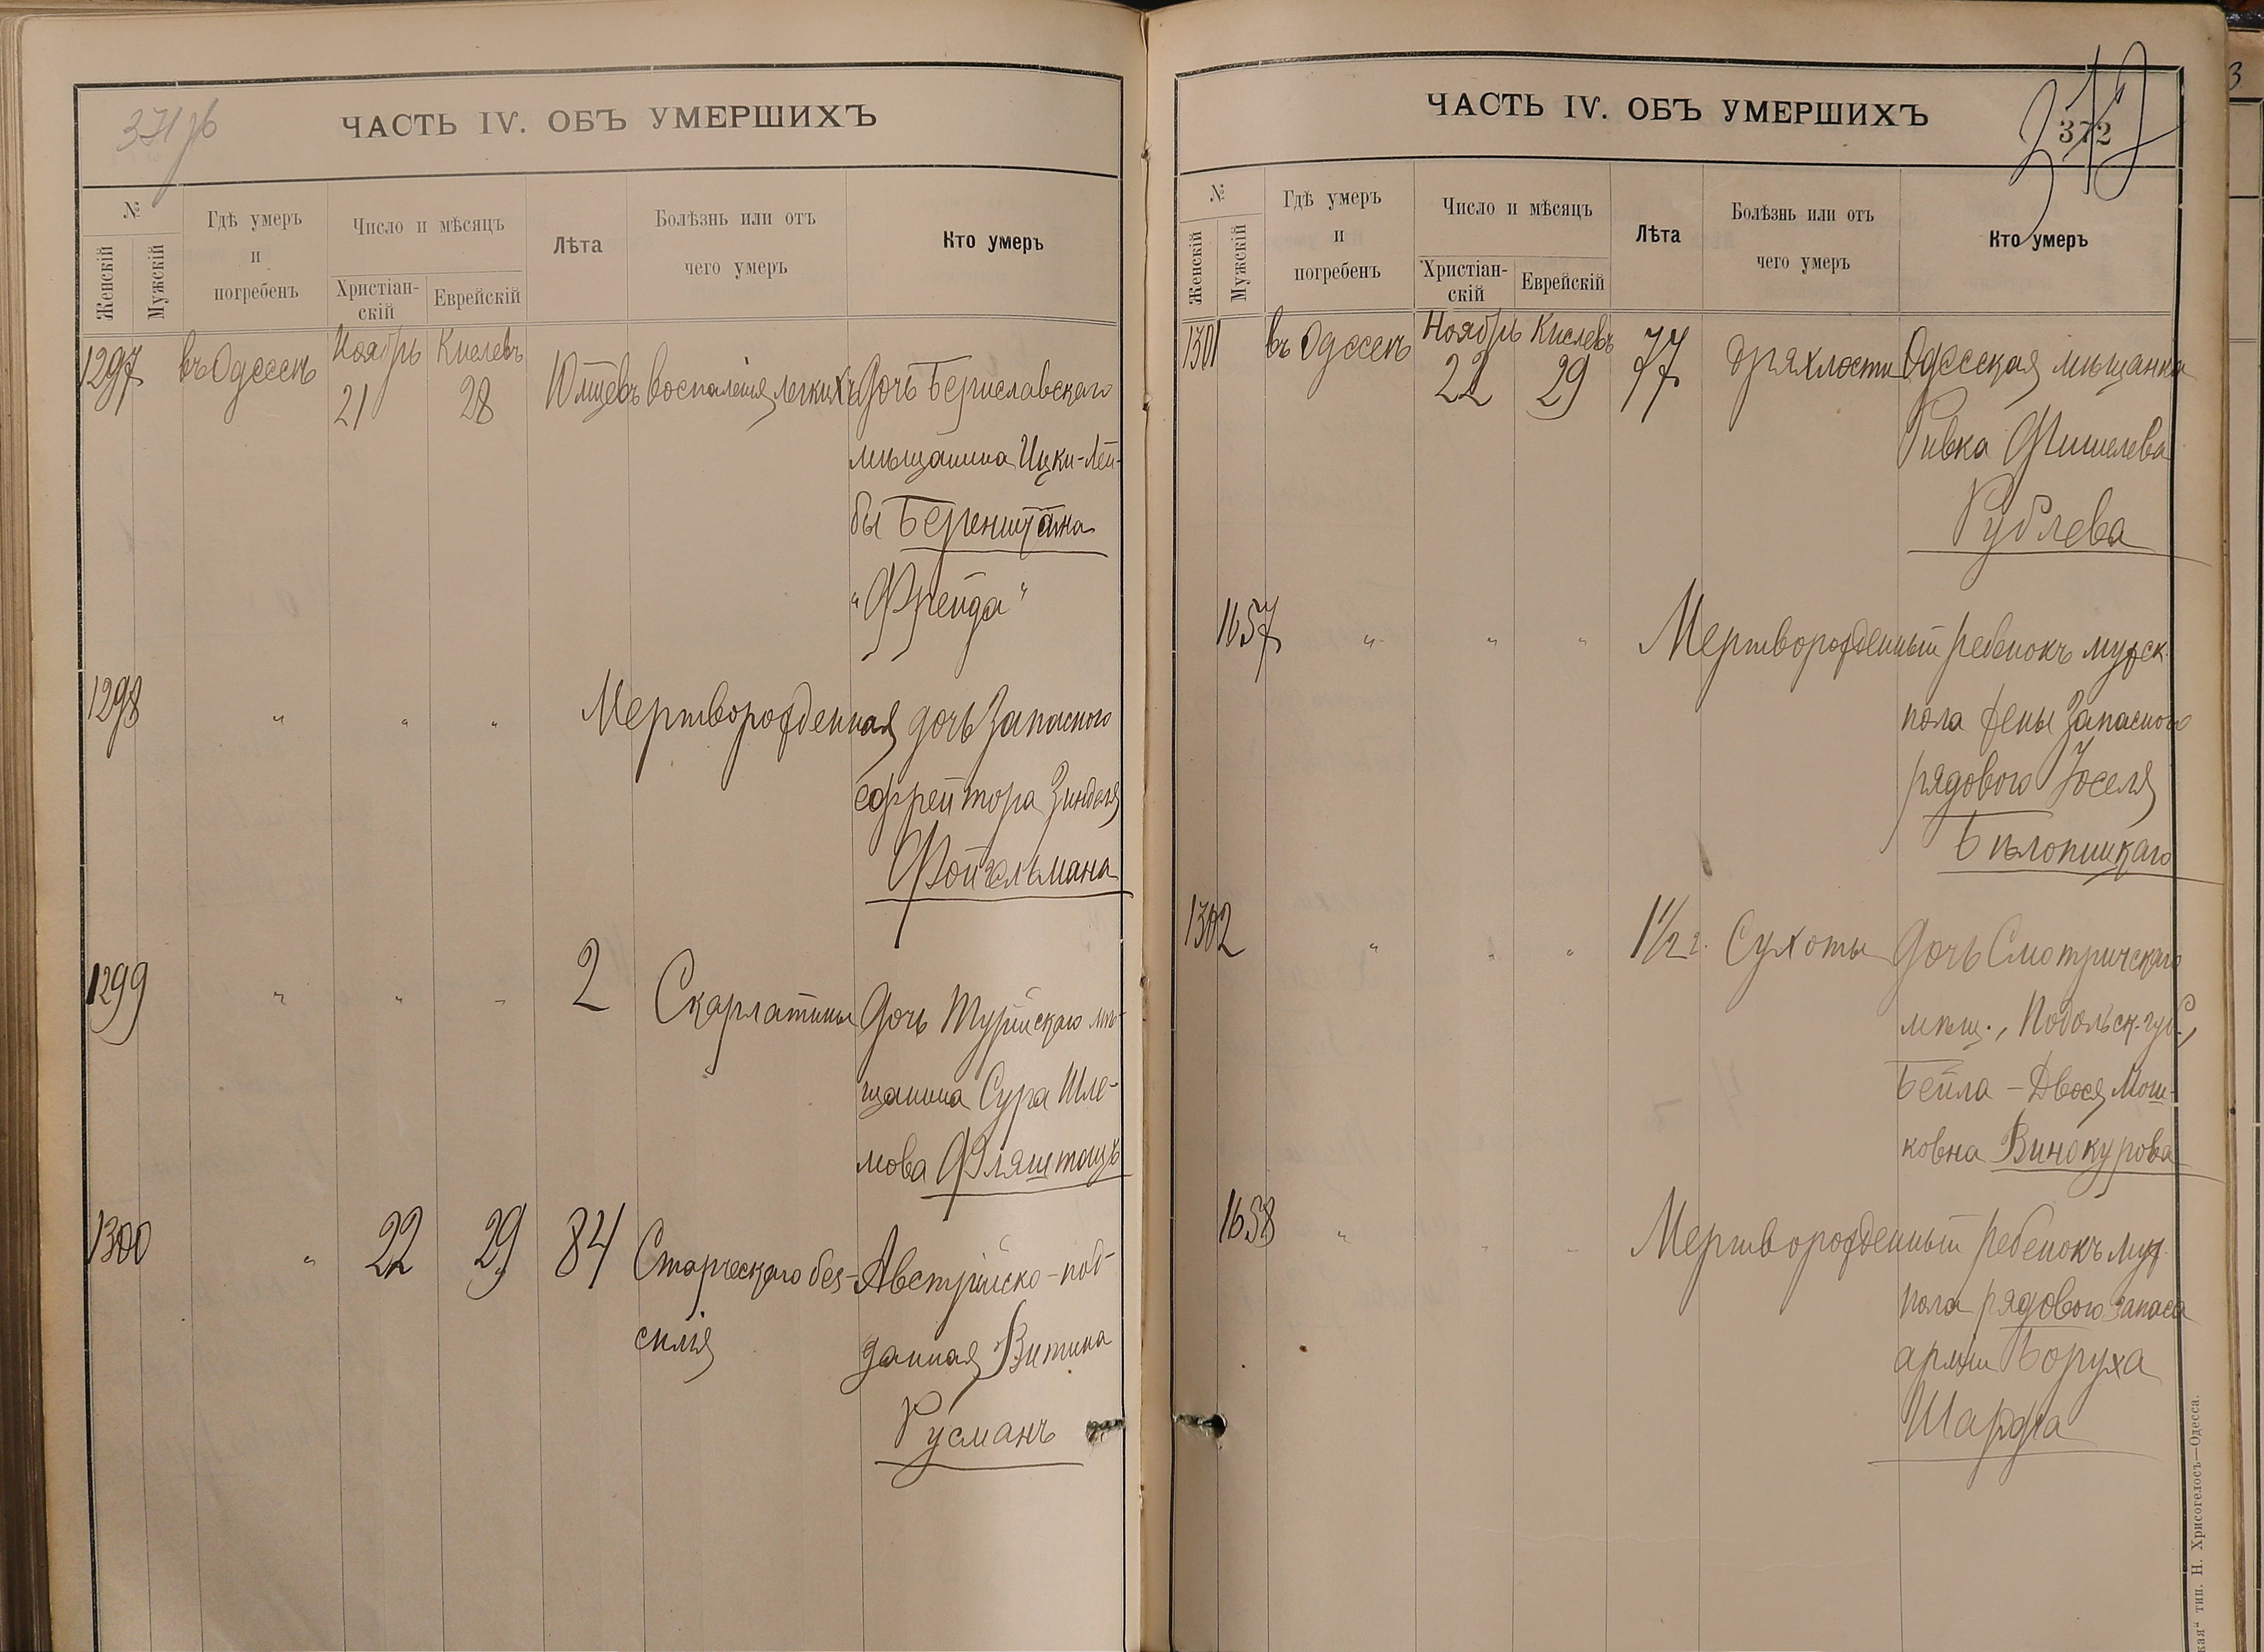 371 об
ЧАСТЬ IV. ОБЪ УМЕРШИХЪ
№
Женскій
Мужскій
Гдѣ умеръ
и
погребенъ
Число и мѣсяцъ
Христіан-
скій
Еврейскій
Лѣта
Болѣзнь или отъ
чего умеръ
Кто умеръ
1297 въ Одессѣ Ноябрь 21 Кислевъ 28 10 мцевъ воспаленія легкихъ Дочь Бериславскаго
мѣщанина Ицки-Лей-
бы Беренштейна
"Фрейда"
1298 " " " Мертворожденная дочь Запасного
ефрейтора Зинделя
Фойгельмана
1299 " " " 2 Скарлатины Дочь Турійскаго мѣ-
щанина Сура Шле-
мова
1300 " 22 29 84 Старческаго без- Австрійско-под-
силія данная Витина
Русманъ
ЧАСТЬ IV. ОБЪ УМЕРШИХЪ
372
№
Женскій
Мужскій
Гдѣ умеръ
и
погребенъ
Число и мѣсяцъ
Христіан-
скій
Еврейскій
Лѣта
Болѣзнь или отъ
чего умеръ
Кто умеръ
1301 въ Одессѣ Ноябрь 22 Кислевъ 29 77 77 Дряхлости Одесская мѣщанка
Ривка Фишелева
Рублева
1657 " " " Мертворожденный ребенокъ мужск.
пола жены Запасного
рядового Іоселя
1302 " " " 1½ г. Сухоты Дочь Смотричскаго
мѣщ., Подольск. губ.,
Бейла-Двося Мош-
ковна Винокурова
1658 " " " Мертворожденный ребенокъ муж.
пола рядового запаса
арміи Боруха
Шарфа
тип. Н. Хрисогелосъ—Одесса.